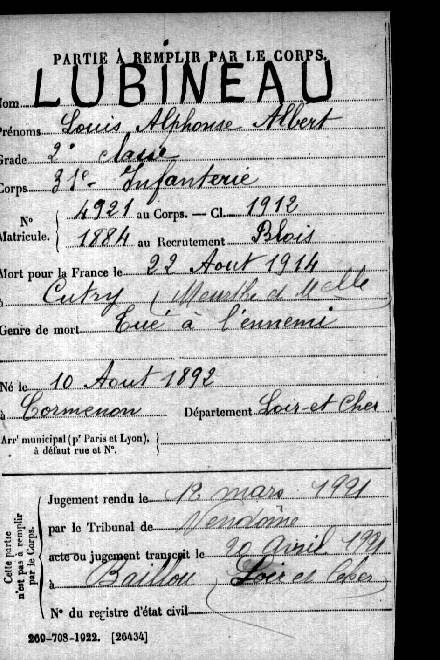 PARTIE À REMPLIR PAR LE CORPS.
Nom LUBINEAU
Prénoms Louis Alphonse Albert
Grade 2e classe
Corps 31e Infanterie
N° Matricule. 4921 au Corps. — Cl. 1912
1884 au Recrutement Blois
Mort pour la France le 22 Aout 1914
à Cutry (Meurthe et Mlle
Genre de mort Tué à l'ennemi
Né le 10 Aout 1892
à Cormenon Département Loir-et-Cher
Arrt municipal (pr Paris et Lyon), à défaut rue et N°.
Cette partie n'est pas à remplir par le Corps.
Jugement rendu le 12 mars 1921
par le Tribunal de Vendôme
acte ou jugement transcrit le 20 avril 1921
à Baillou Loir et Cher
N° du registre d'état civil
269-708-1922. [26434]